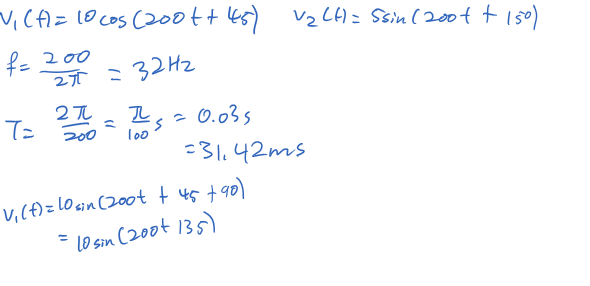 V₁(t) = 10cos(200t + 45) V₂(t) = 5sin(200t + 150)
f = 200/2π = 32Hz
T = 2π/200 = π/100 s = 0.03s
= 31.42ms
V₁(t) = 10sin(200t + 45 + 90)
= 10sin(200t 135)